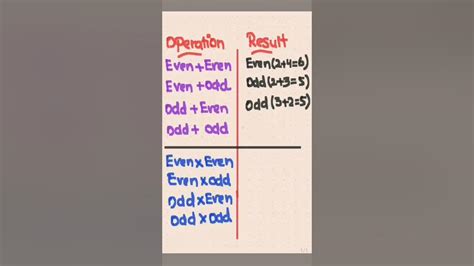 Operation Result
Even+Even Even(2+4=6)
Even+odd Odd(2+3=5)
Odd+Even Odd(3+2=5)
Odd+odd
Even×Even
Even×odd
Odd×Even
Odd×Odd